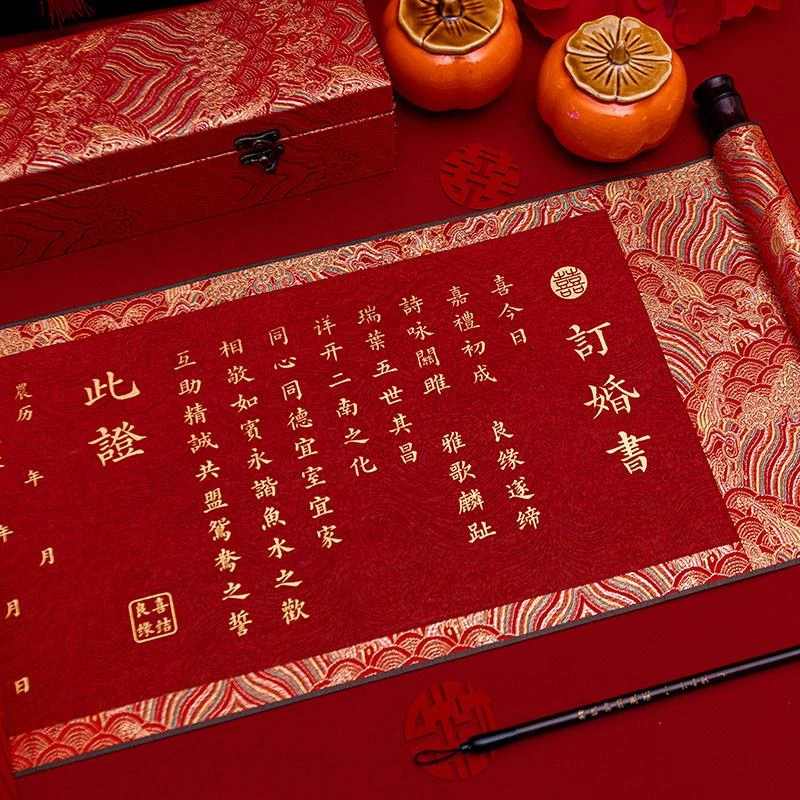 囍
囍
訂婚書
喜今日
嘉禮初成 良缘遂缔
詩咏關雎 雅歌麟趾
瑞葉五世其昌
详开二南之化
同心同德宜室宜家
相敬如賓永諧魚水之歡
互助精誠共盟鴛鴦之誓
此證
喜结
良缘
農历 年 月
年 月 日
囍